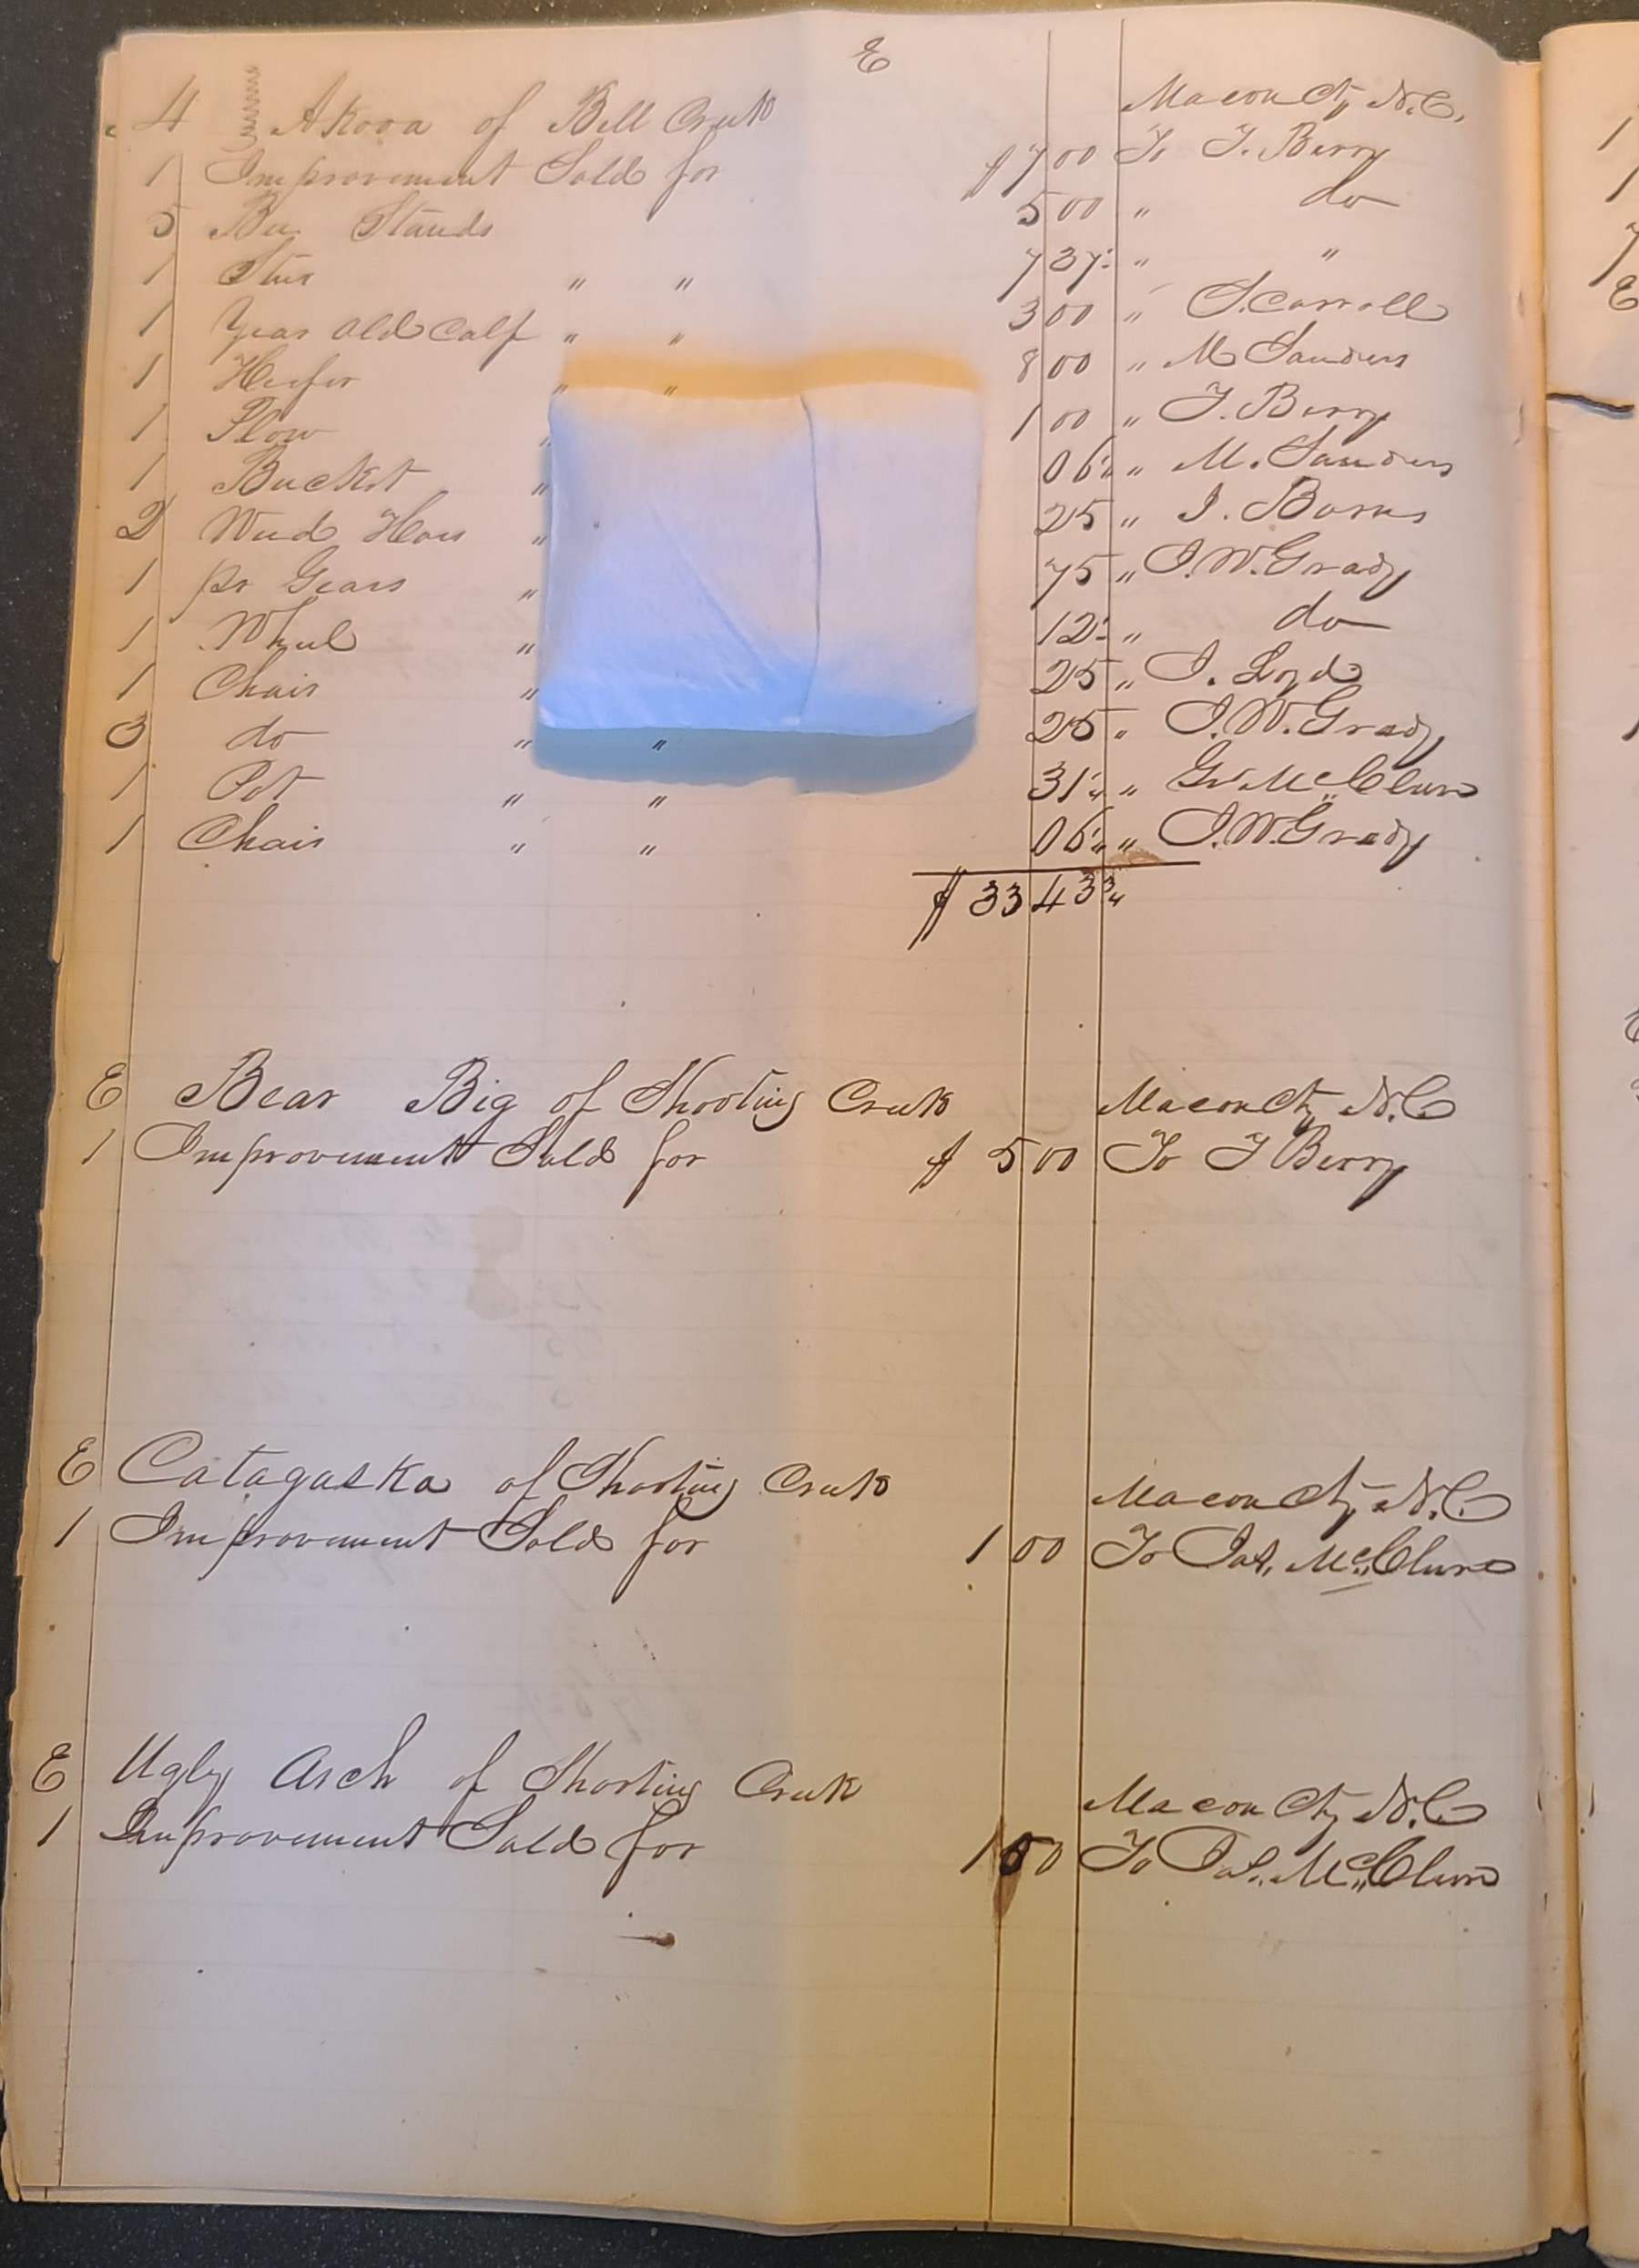 E
4 Akooa of Bell Creek Macon Cty N.C.
1 Improvement Sold for $7 00 To T. Berry
5 Bee Stands 5 00 " do
1 Steer " " 7 37 1/2 " "
1 Year old Calf " " 3 00 " S. Carroll
1 Heifer " " 8 00 " M Sanders
1 Plow " 1 00 " T. Berry
1 Bucket " 06 1/4 " M. Sanders
2 Weed Hoes " 25 " J. Barns
1 pr Gears " 75 " J. W. Grady
1 Wheel " 12 1/2 " do
1 Chair " 25 " J. Loyd
3 do " " 25 " J. W. Grady
1 Pot " " 31 1/4 " G. McClure
1 Chair " " 06 1/4 " J. W. Grady
$ 33 43 3/4
E Bear Big of Shooting Creek Macon Cty N.C
1 Improvement Sold for $ 5 00 To T Berry
E Catagaska of Shooting Creek Macon Cty N.C
1 Improvement Sold for 1 00 To Jas. McClure
E Ugly Arch of Shooting Creek Macon Cty N.C
1 Improvement Sold for 1 50 To Jas. McClure